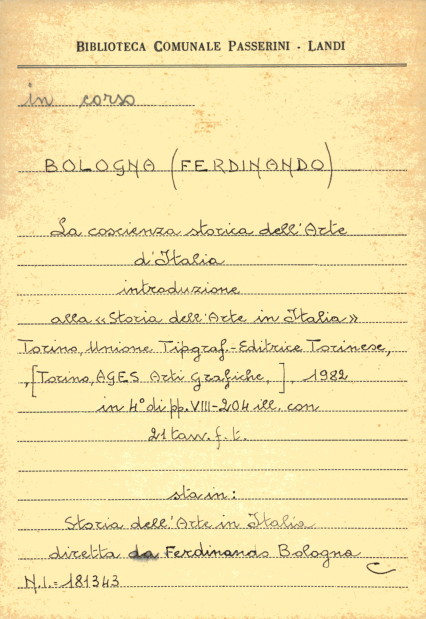 BIBLIOTECA COMUNALE PASSERINI - LANDI
in corso
BOLOGNA (FERDINANDO)
La coscienza storica dell'Arte
d'Italia
introduzione
alla «Storia dell'Arte in Italia»
Torino, Unione Tipograf.-Editrice Torinese,
,[Torino, AGES Arti Grafiche, ], 1982
in 4° di pp. VIII-204 ill. con
21 tav. f. t.
sta in:
Storia dell'Arte in Italia
diretta da Ferdinando Bologna
N.I.= 181343 C